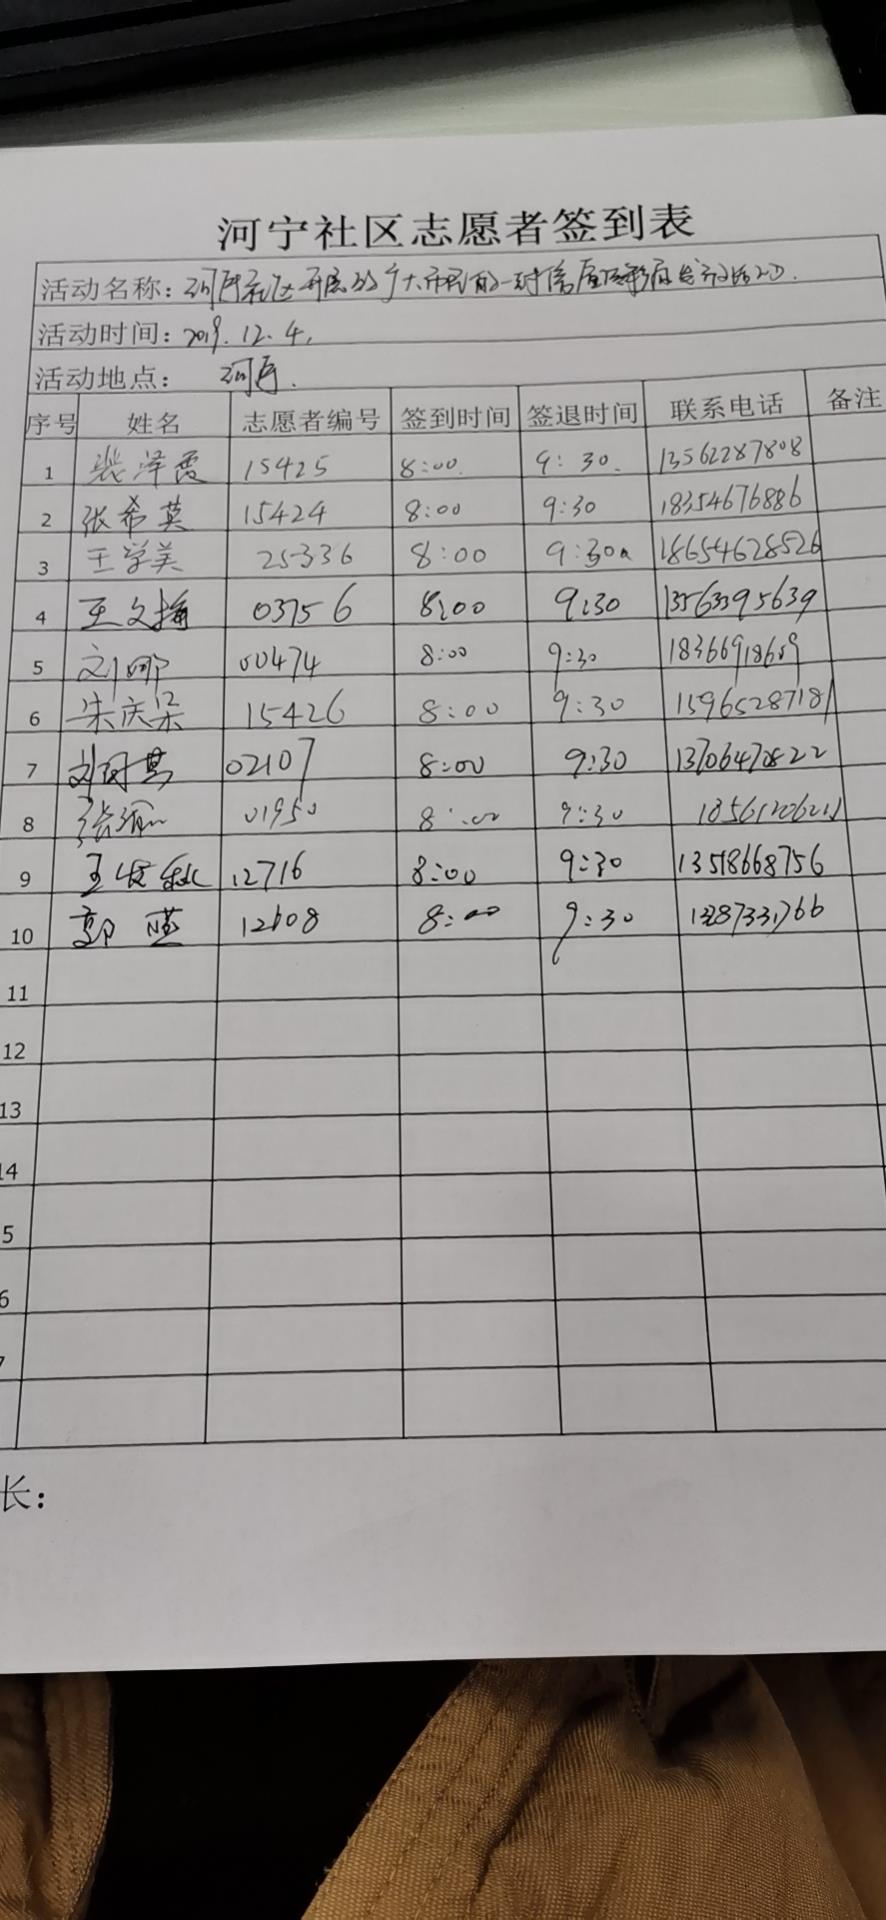 河宁社区志愿者签到表
活动名称：河宁社区开展的广大市民
活动时间：2019.12.4.
活动地点： 河宁.
序号 姓名 志愿者编号 签到时间 签退时间 联系电话 备注
1 裴泽霞 15425 8:00. 9:30. 13562287808
2 张希英 15424 8:00 9:30 18354676886
3 王学美 25336 8:00 9:30 18654628526
4 王文梅 03756 8:00 9:30 13563395639
5 刘娜 00474 8:00 9:30
6 朱庆呆 15426 8:00 9:30 15965287181
7 刘 02107 8:00 9:30 13706470822
8 张 01950 8:00 9:30
9 王 12716 8:00 9:30 13518668756
10 郭 12608 8:00 9:30
11
12
13
14
5
6
7
长：